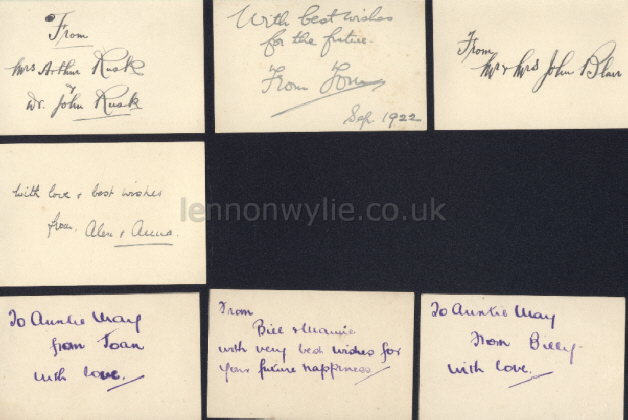 From
Mrs Arthur Rusk
&
Dr. John Rusk
With best wishes
for the future.
From
Sep. 1922
From
Mr & Mrs John Blair
With love & best wishes
from Alex & Anna.
lennonwylie.co.uk
To Auntie May
from Joan
with love.
From
Bill & Mamie
with very best wishes for
your future happiness
To Auntie May
from Billy
with love.